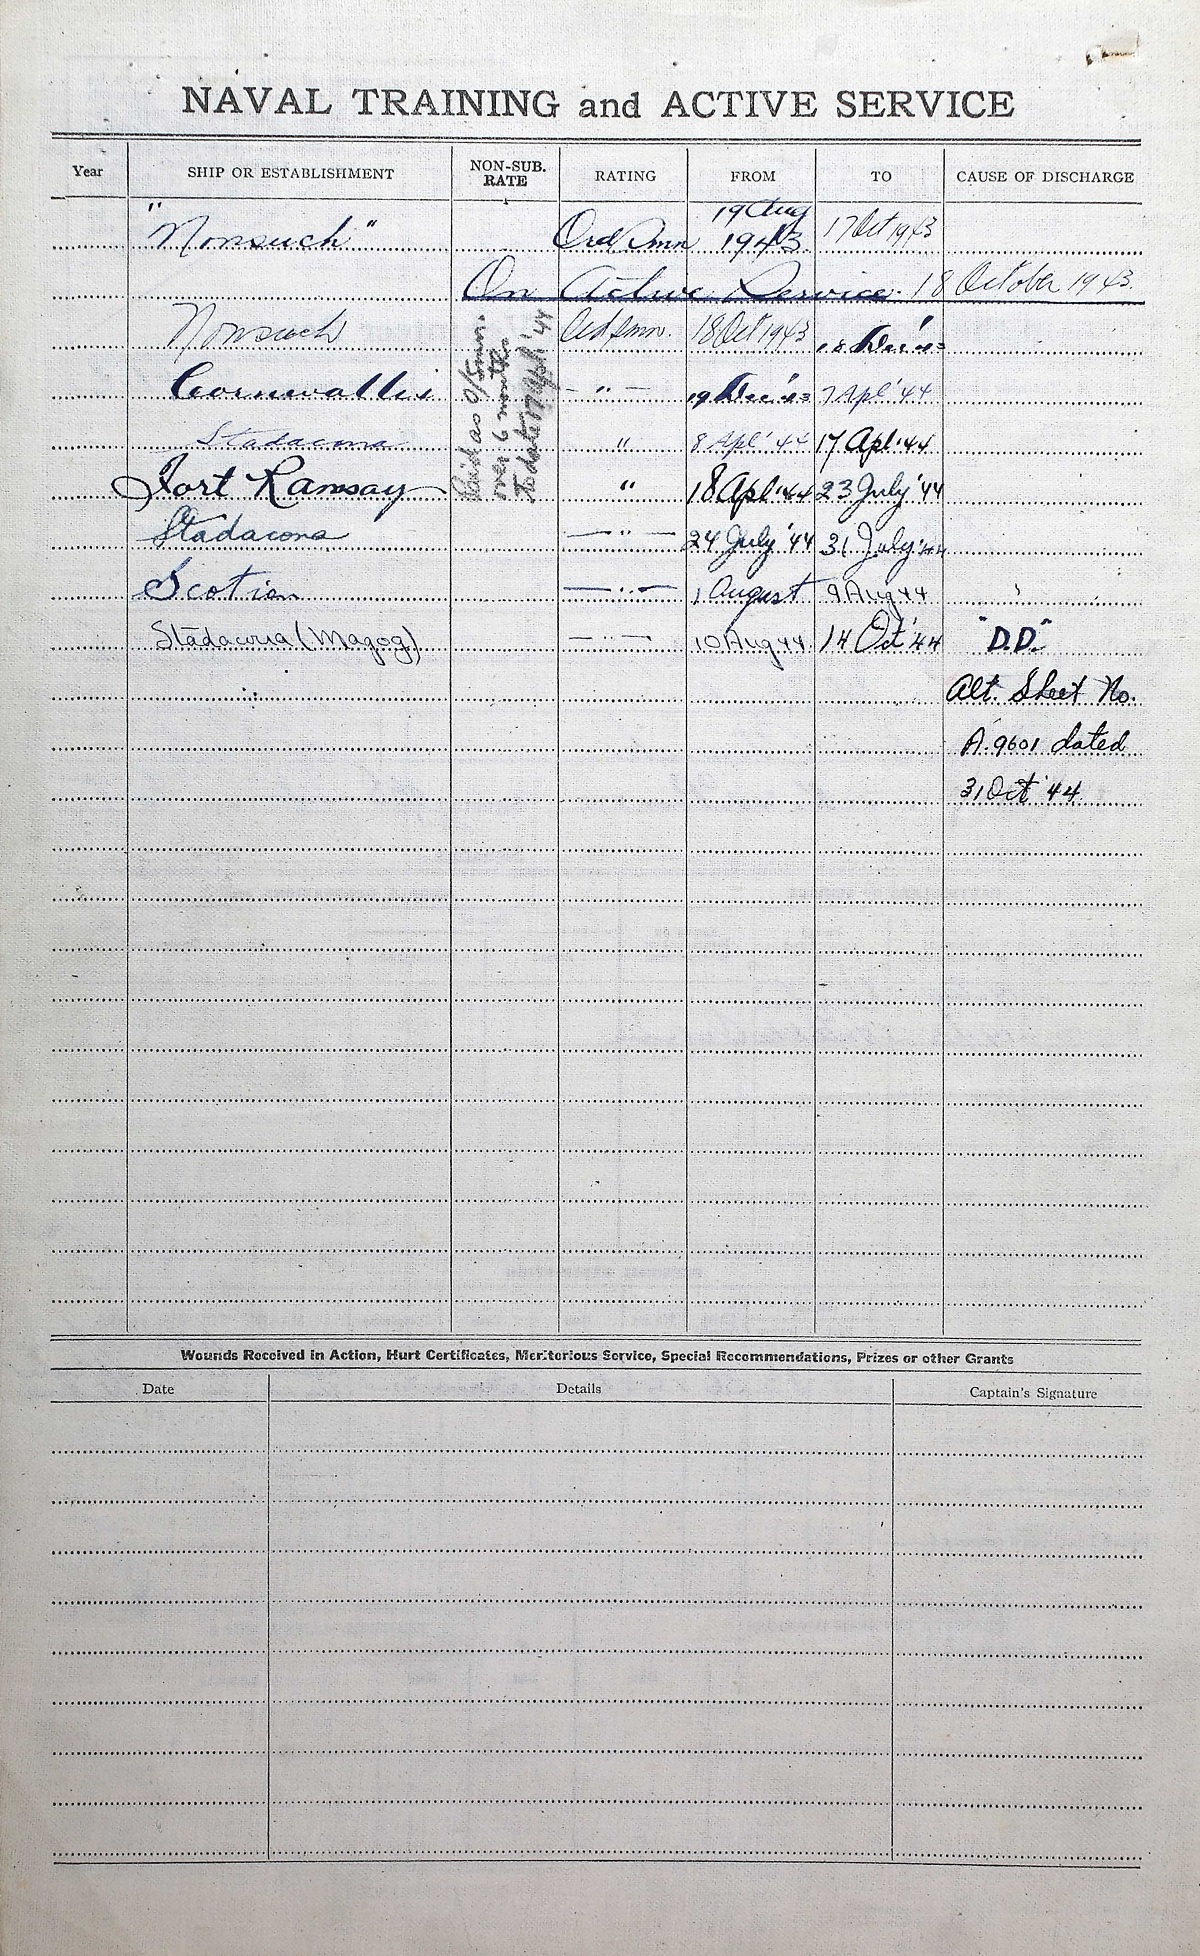 NAVAL TRAINING and ACTIVE SERVICE
Year SHIP OR ESTABLISHMENT NON-SUB. RATE RATING FROM TO CAUSE OF DISCHARGE
"Nonsuch" Ord Smn 19 Aug 1943 17 Oct 1943
On Active Service. 18 October 1943.
Nonsuch Ord Smn. 18 Oct 1943 18 Dec '43
Cornwallis – " – 19 Dec '43 7 Apl '44
Stadacona " 8 Apl '44 17 Apl '44
Fort Ramsay " 18 Apl '44 23 July '44
Stadacona — " — 24 July '44 31 July '44
Scotian — " — 1 August 9 Aug 44
Stadacona (Magog) — " — 10 Aug 44. 14 Oct '44 "D.D."
Paid as O/Smn.
over 6 months
to date 17 Apl. '44
Alt. Sheet No.
A.9601 dated
31 Oct '44
Wounds Received in Action, Hurt Certificates, Meritorious Service, Special Recommendations, Prizes or other Grants
Date Details Captain's Signature